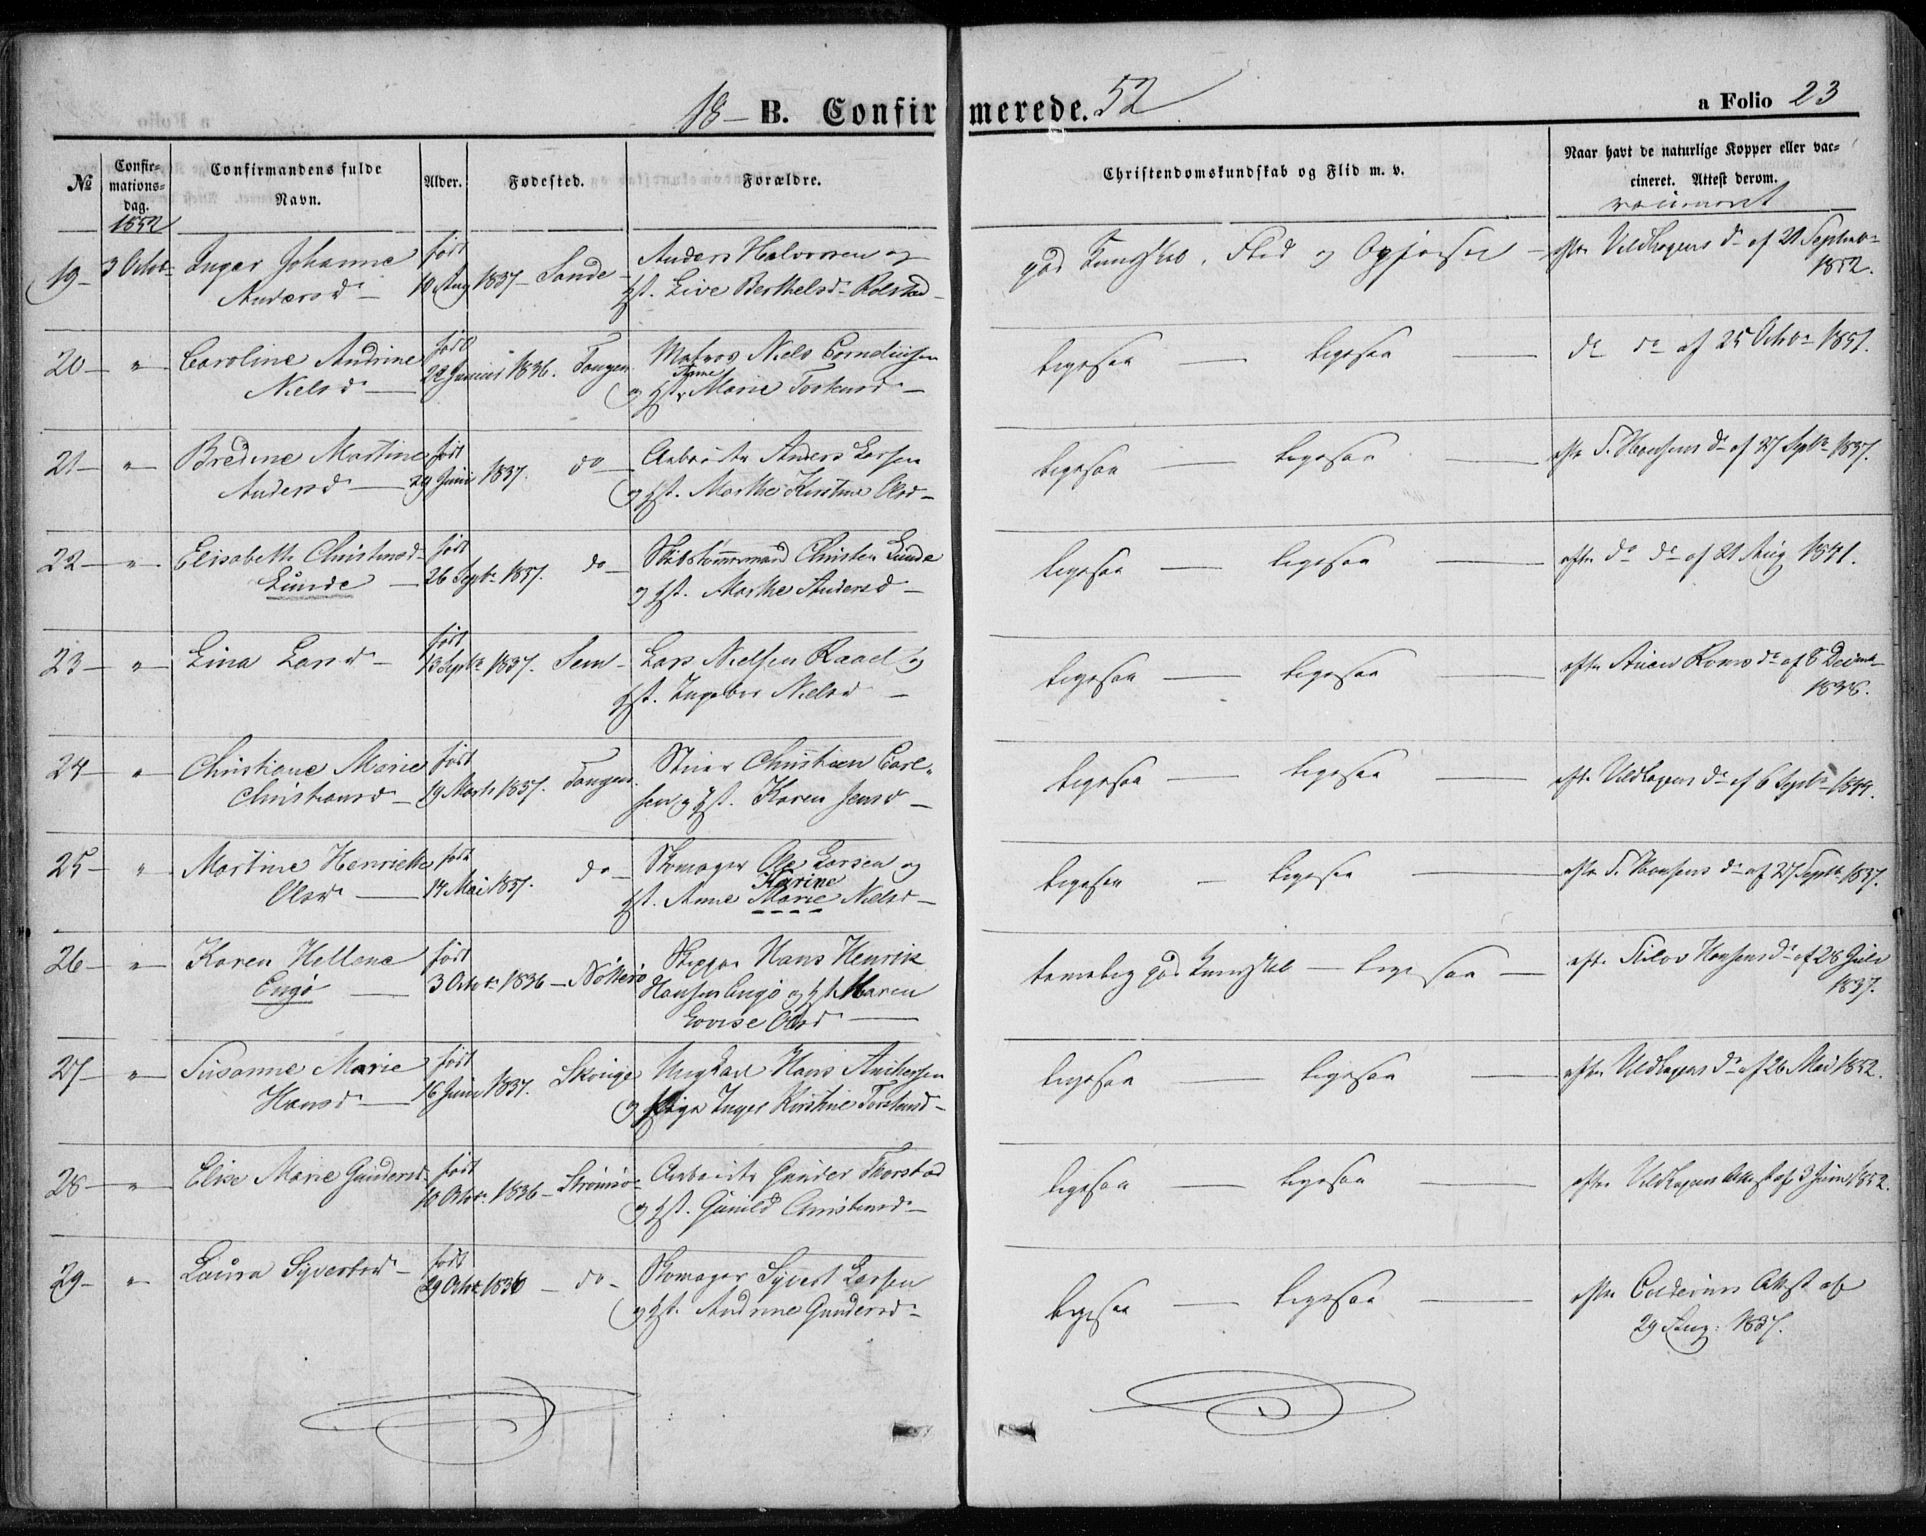 18 - B. Confirmerede. 52 a Folio 23
№ Confirmationsdag. Confirmandens fulde Navn. Alder. Fødested. Forældre. Christendomskundskab og Flid m. v. Naar havt de naturlige Kopper eller vaccineret. Attest derom.
1852
19 - 3 Octobr Inger Johanne født Sande - Anders Halvorsen og god Kundskab, Flid og Opførsel - efter Vildhagens do af 21 Septembr
Andersd - 19 Aug 1837 - Hst. Live Berthelsd Rolstad - 1852.
20 - " - Caroline Andrine født Tangen Matros Niels Cornelius­sen ligesaa - ligesaa - do do af 25 Octobr 1851.
Nielsd - 22 Januar 1836. og Hst. Anne Marie Torkersd -
21 - " - Bredine Martine født do - Arbeider Anders Larsen ligesaa - ligesaa - efter S. Hansens do af 27 Septbr 1837.
Andersd - 29 Juni 1837. og Hst. Marthe Kirstine Olsd -
22 - " - Elisabeth Christensd født do - Skibstømmermand Christen Lunde ligesaa - ligesaa - efter do do af 21 Aug 1841.
Lunde - 26 Septbr 1837. og Hst. Marthe Andersd -
23 - " - Lina Larsd - født Sem - Lars Nielsen Raael og ligesaa - ligesaa - efter do af 8 Decembr
13 Septbr 1837. Hst. Ingebor Nielsd - 1838.
24 - " - Christiane Marie født Tangen Christian Carl- ligesaa - ligesaa - efter Vildhagens do af 6 Septbr 1844.
Christiansd - 19 Marts 1837. sen og Hst. Karen Jensd -
25 - " Martine Henriette født do - Skomager Ole Larsen og ligesaa - ligesaa - efter S. Hansens do af 27 Septbr 1837.
Olsd - 14 Mai 1837. Hst. Anne Marie Karine Nielsd -
26 - " - Karen Hellene født Nøtterø Skipper Hans Henrik temmelig god Kundskab - ligesaa - efter Hansens do af 28 Juli
Engø - 3 Octobr 1836 - Hansen Engø og Hst. Maren 1837.
Lovise Olsd -
27 - " - Susanne Marie født Skouge Ungkarl Hans ligesaa - ligesaa - efter Vildhagens do af 26 Mai 1852.
Hansd - 16 Juni 1837. og Pige Inger Kirstine Torstensd -
28 - " - Elise Marie Gundersd født Strømsø Arbeider Gunder Thorstad ligesaa - ligesaa - efter Vildhagens Attest af 3 Juni 1852.
10 Octobr 1836 - og Hst. Gunild Christensd -
29 - " - Laura Syvertsd - født do - Skomager Syvert Larsen ligesaa - ligesaa - efter Attest af
29 Octbr 1836 - og Hst. Andrine Gundersd - 29 Aug: 1837.